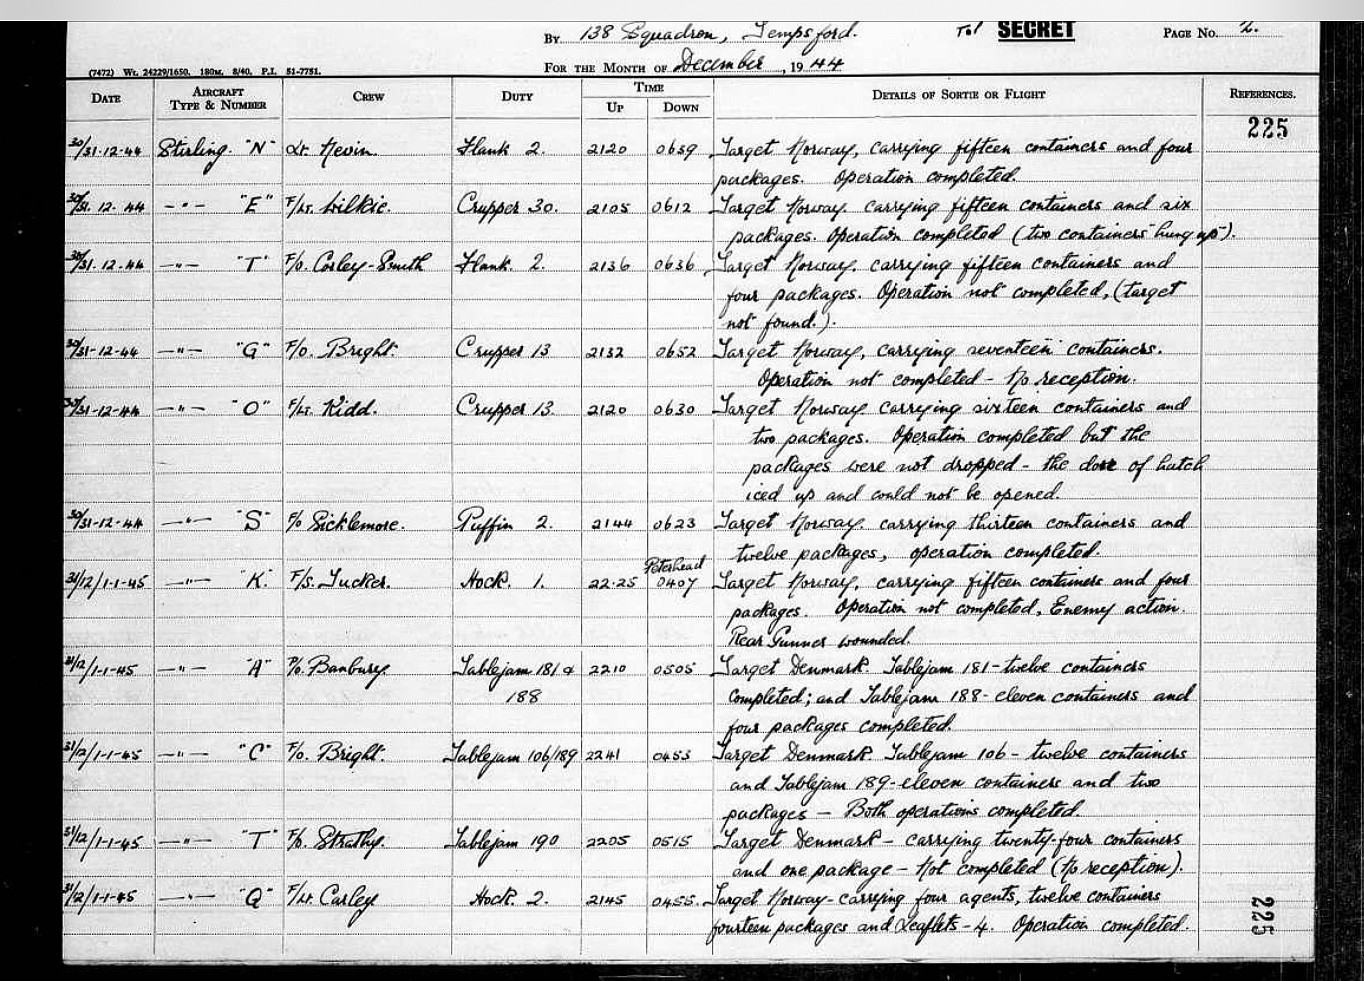 By 138 Squadron, Tempsford. SECRET Page No. 2.
For the Month of December, 1944
(7472) Wt. 24229/1650. 180M. 8/40. P.I. 51-7751.
Date Aircraft Type & Number Crew Duty Time Up Down Details of Sortie or Flight References.
225
30/31-12-44 Stirling "N" Lt. Nevin. Flank 2. 2120 0639 Target Norway, carrying fifteen containers and four
packages. Operation completed.
30/31.12.44 -"- "E" F/Lt. Wilkie. Crupper 30. 2105 0612 Target Norway. carrying fifteen containers and six
packages. Operation completed (two containers "hung up").
30/31.12.44 -"- "T" F/O. Corley-Smith Flank. 2. 2136 0636 Target Norway, carrying fifteen containers and
four packages. Operation not completed, (target
not found.).
30/31-12-44 -"- "G" F/O. Bright. Crupper 13 2132 0652 Target Norway, carrying seventeen containers.
Operation not completed - No reception.
30/31-12-44 -"- "O" F/Lt. Kidd. Crupper 13. 2120 0630 Target Norway carrying sixteen containers and
two packages. Operation completed but the
packages were not dropped - the door of hatch
iced up and could not be opened.
30/31-12-44 -"- "S" F/O Sicklemore. Puffin 2. 2144 0623 Target Norway. carrying thirteen containers and
twelve packages, operation completed.
Peterhead
31/12/1-1-45 -"- "K." F/S. Tucker. Hock. 1. 22.25 0407 Target Norway, carrying fifteen containers and four
packages. Operation not completed, Enemy action.
Rear Gunner wounded.
31/12/1-1-45 -"- "A" P/O. Banbury. Tablejam 181 & 2210 0505 Target Denmark. Tablejam 181-twelve containers
188 completed; and Tablejam 188-eleven containers and
four packages completed.
31/12/1-1-45 -"- "C" F/O. Bright. Tablejam 106/189 2241 0453 Target Denmark. Tablejam 106 - twelve containers
and Tablejam 189-eleven containers and two
packages - Both operations completed.
31/12/1-1-45 -"- "T" F/O. Strathy. Tablejam 190 2205 0515 Target Denmark - carrying twenty-four containers
and one package - Not completed (No reception).
31/12/1-1-45 -"- "Q" F/Lt. Carley Hock. 2. 2145 0455. Target Norway-carrying four agents, twelve containers
fourteen packages and Leaflets-4. Operation completed.
225